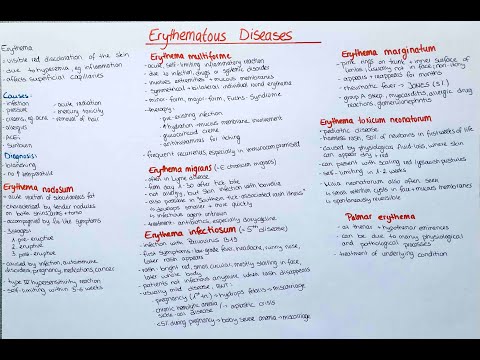 Erythematous Diseases
Erythema
- visible red discoloration of the skin
- due to hyperemia, eg inflammation
- affects superficial capillaries
Causes:
- infection
- acute radiation
- pressure
- mercury toxicity
- creams, eg acne
- removal of hair
- allergies
- laser
- sunburn
Diagnosis:
- blanching
- no ↑ temperature
Erythema nodosum
- acute reaction of subcutaneous fat
- characterised by tender nodules
on both shins/arms + torso
- accompanied by flu like symptoms
- 3 stages:
1 pre-eruptive
2 eruptive
3 post-eruptive
- caused by infection, autoimmune
disorders, pregnancy, medications, cancer
- type IV hypersensitivity reaction
- self-limiting within 3-6 weeks
Erythema multiforme
- acute, self-limiting inflammatory reaction
- due to infection, drugs or systemic disorder
- involves extremities + mucous membranes
- symmetrical + bilateral, individual round erythema
- minor-form, major-form, Fuchs-Syndrome
- therapy:
- pre-existing infection
- hydration + mucous membrane involvement
- glucocorticoid creme
- antihistamines for itching
- frequent recurrences, especially in immunocompromised
Erythema migrans (=E. chronicum migrans)
- seen in lyme disease
- from day 7-30 after tick bite
- not allergy, but skin infection with borrelia
- also possible in "Southern tick associated rash illness"
↳ grows smaller + more quickly
↳ infectious agent unknown
- treatment: antibiotics, especially doxycycline
Erythema infectiosum (= 5th disease)
- infection with Parvovirus B19
- first symptoms: low fever, headache, runny nose,
later rash appears
- rash: bright red, small, circular, mostly scaling in face,
later whole body
- patients not infectious anymore when rash disappears
- usually mild disease, BUT:
pregnancy (1st tri.) → hydrops fetalis → miscarriage
chronic hemolytic anemia
sickle cell disease → aplastic crisis
<5% during pregnancy → baby severe anemia → miscarriage
Erythema marginatum
- pink rings on trunk + inner surface of
limbs, usually not in face, non-itchy
- appears + reappears for months
- rheumatic fever → JONES (5.)
- group A strep., myocarditis, allergic drug
reactions, glomerulonephritis
Erythema toxicum neonatorum
- pediatric disease
- harmless rash, 50% of newborns in first weeks of life
- caused by physiological fluid loss, where skin
can appear dry + red
- can present with scaling and lymphocyte pustules
- self-limiting in 1-2 weeks
- Milia neonatorum also often seen
↳ small retention cysts in face + mucous membranes
↳ spontaneously reversible
Palmar erythema
- at thenar + hypothenar eminences
- can be due to many physiological
and pathological processes
- treatment of underlying condition